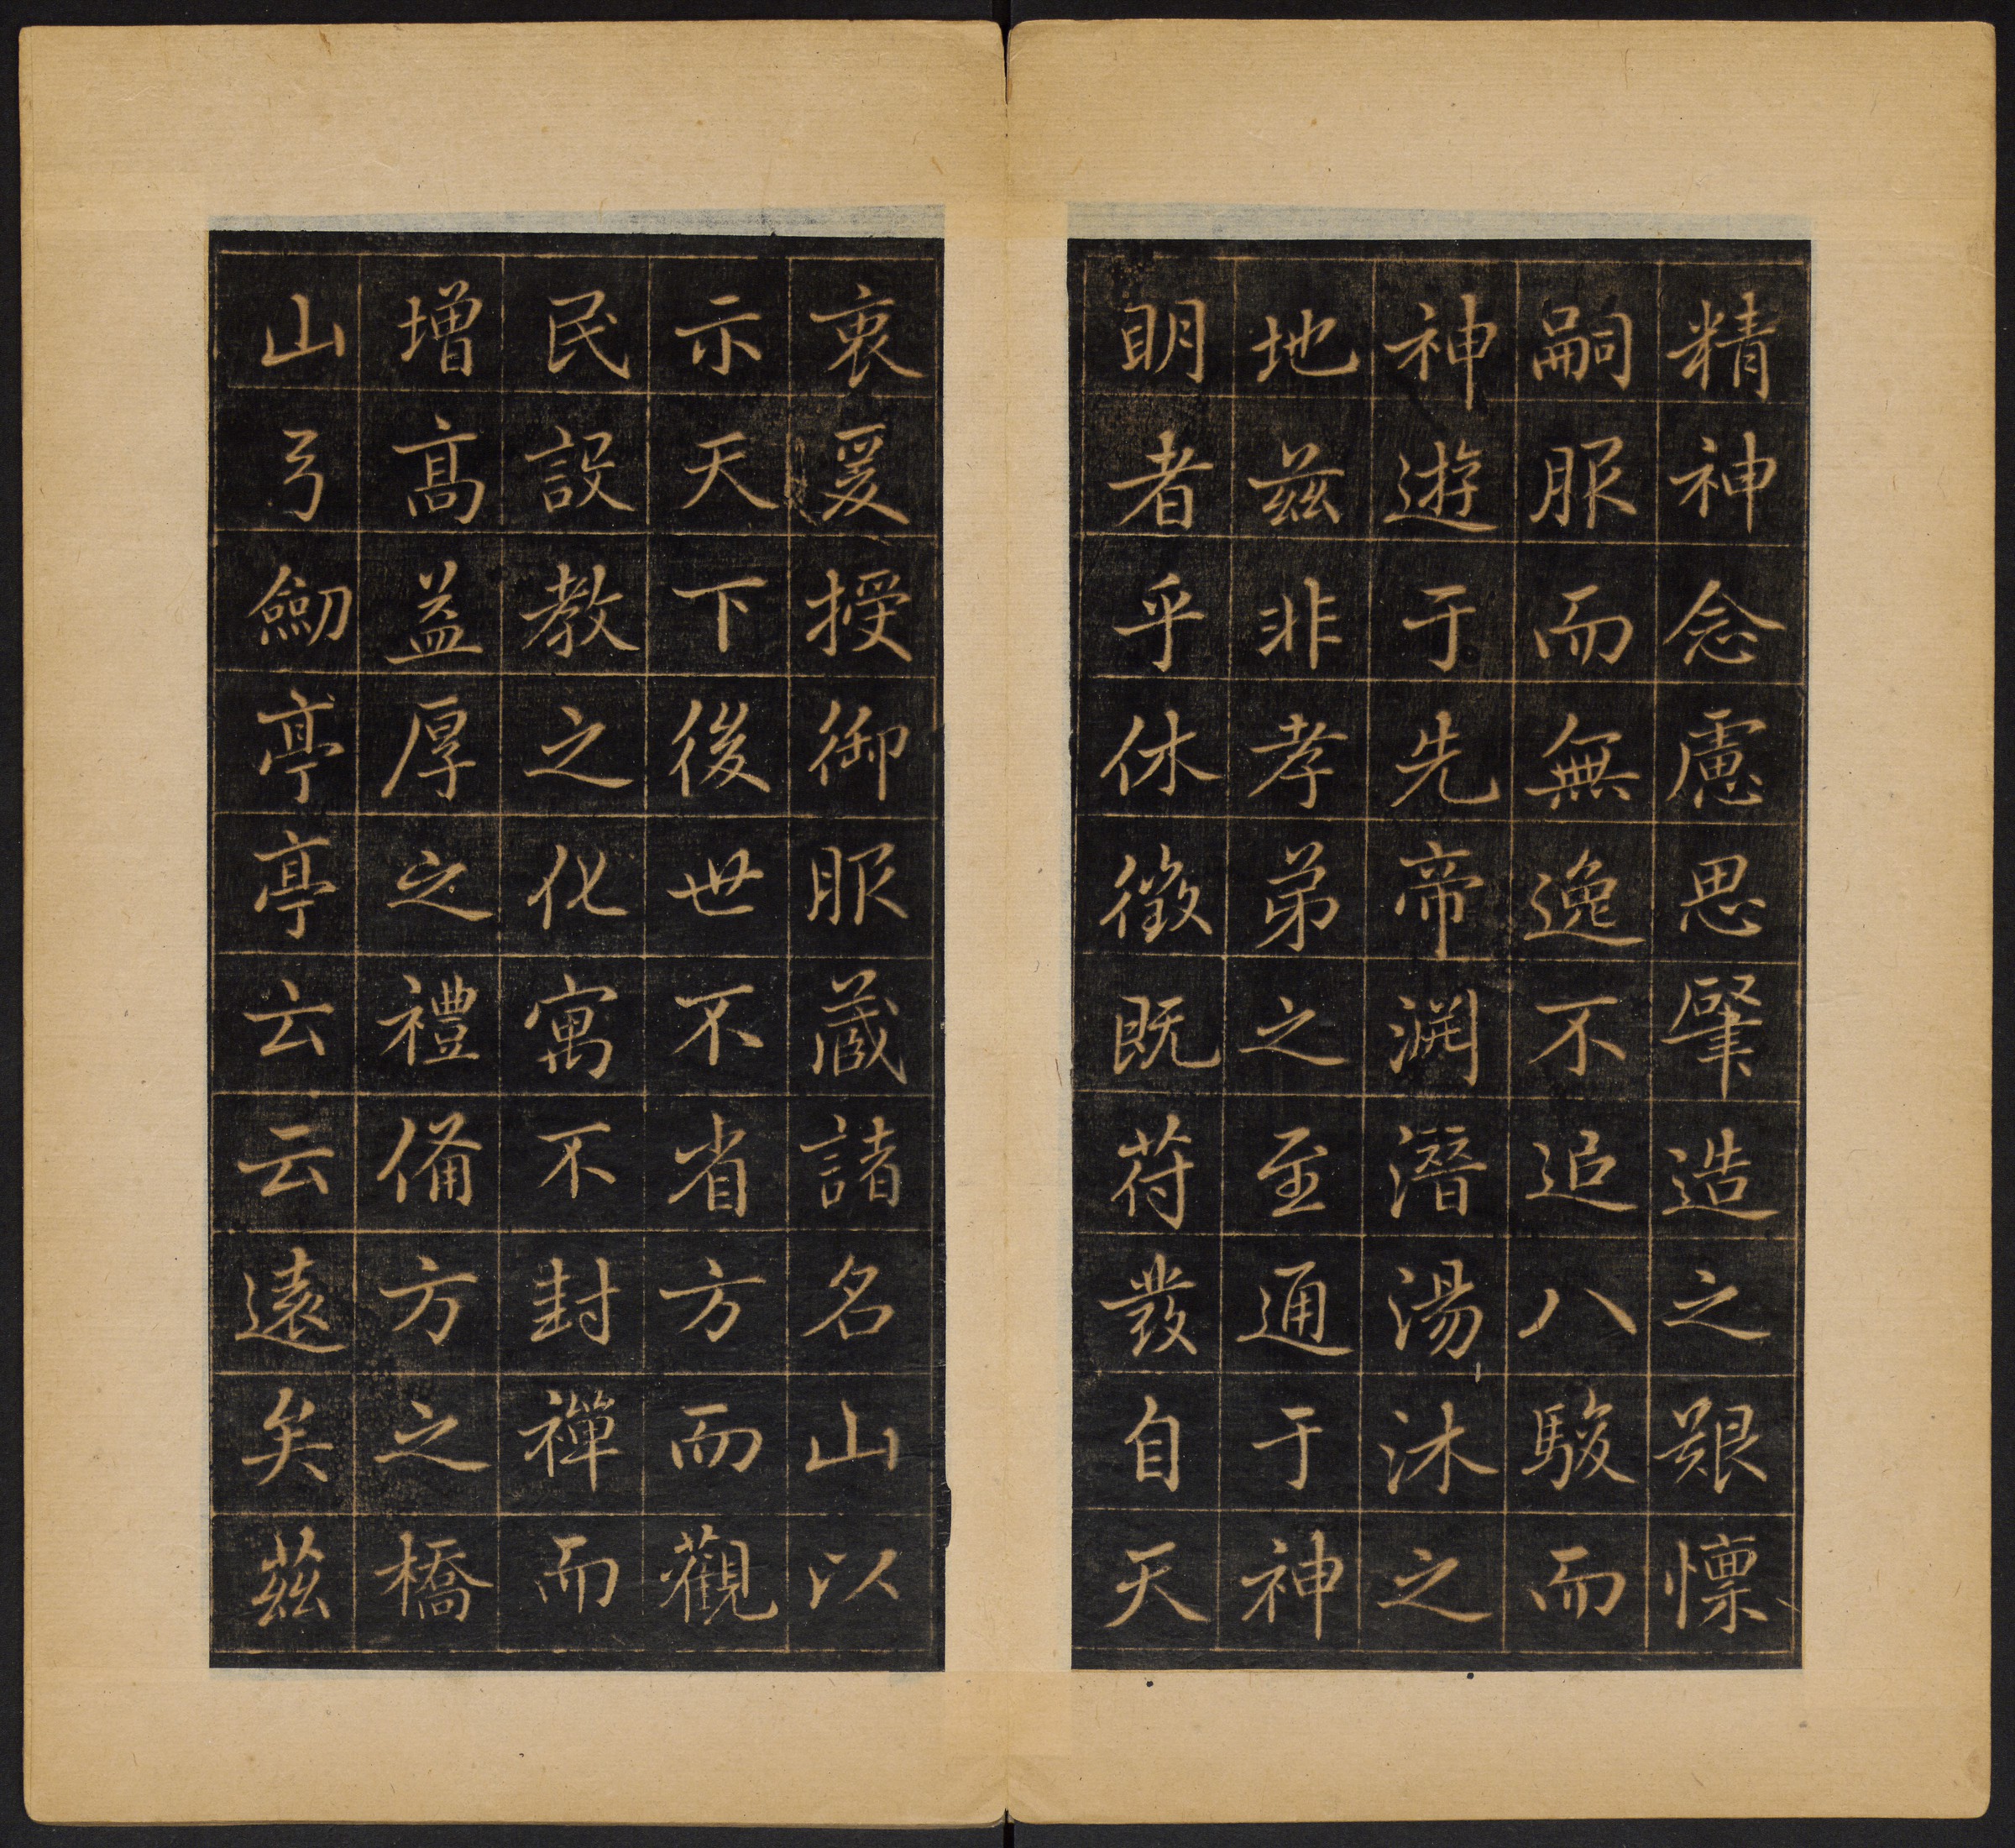 精神念慮思肇造之艱懍
嗣服而無逸不追八駿而
神遊于先帝淵潛湯沐之
地茲非孝弟之至通于神
明者乎休徵既苻發自天
衷爰授御服藏諸名山以
示天下後世不省方而觀
民設教之化寓不封禪而
增高益厚之禮備方之橋
山弓劒亭亭云云遠矣茲